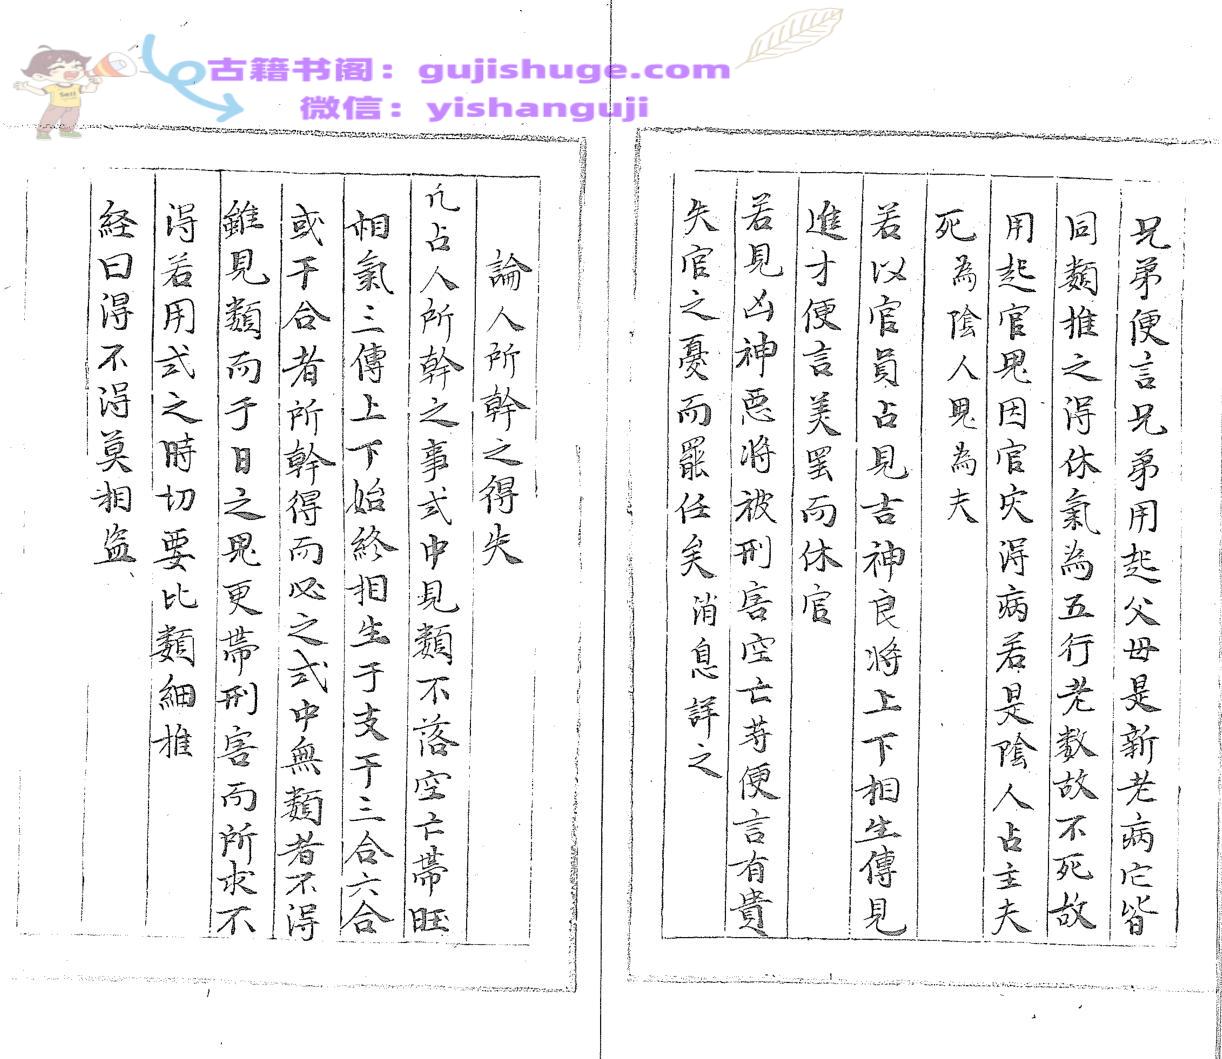 古籍书阁：gujishuge.com
微信：yishanguji
兄弟便言兄弟用起父母是新老病它皆
同類推之得休氣為五行老數故不死故
用起官鬼因官灾淂病若是陰人占主夫
死為陰人鬼為夫
若以官員占見吉神良將上下相生傳見
進才便言美罢而休官
若見凶神惡將被刑害空亡䓁便言有貴
失官之憂而罷任矣消息詳之
論人所幹之得失
凢占人所幹之事式中見類不落空亡帶旺
相氣三傳上下始終相生于支干三合六合
或干合者所幹得而必之式中無類者不淂
雖見類而于日之鬼更帶刑害而所求不
淂若用式之時切要比類細推
経曰淂不淂莫相盗